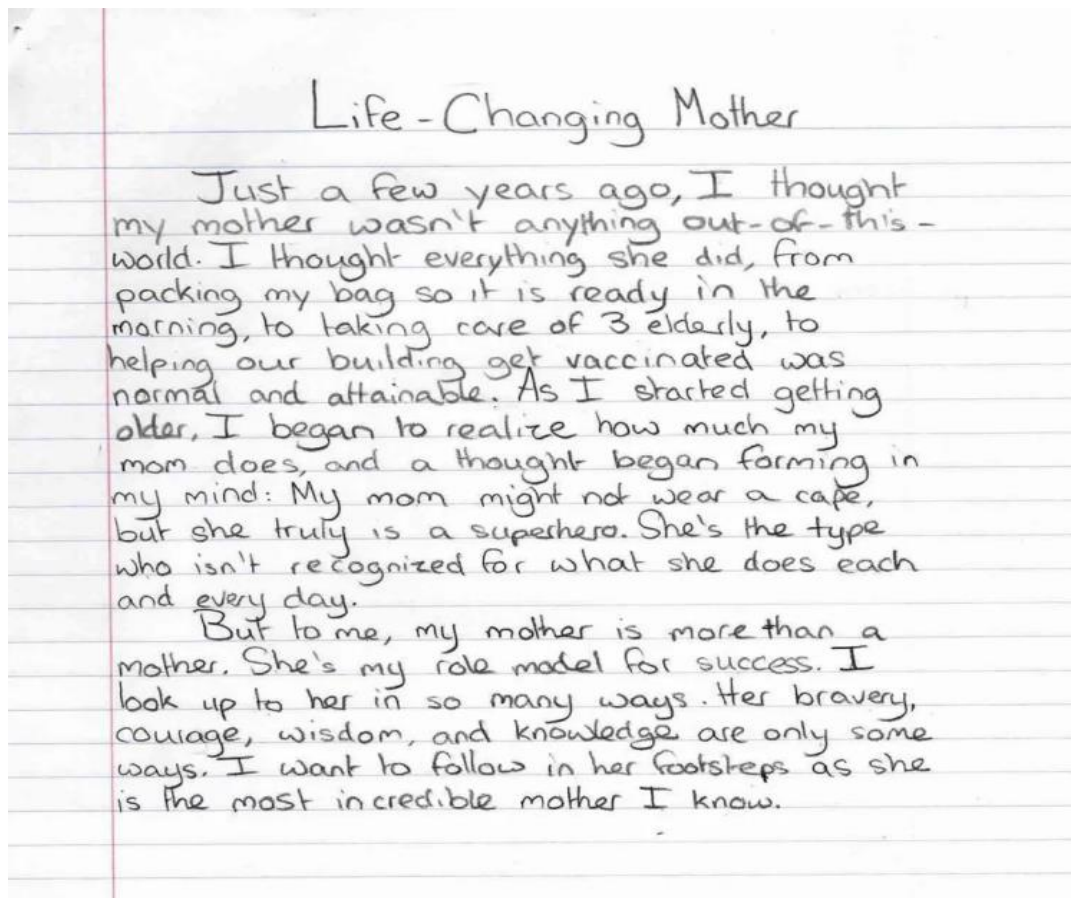 Life-Changing Mother
Just a few years ago, I thought
my mother wasn't anything out-of-this-
world. I thought everything she did, from
packing my bag so it is ready in the
morning, to taking care of 3 elderly, to
helping our building get vaccinated was
normal and attainable. As I started getting
older, I began to realize how much my
mom does, and a thought began forming in
my mind: My mom might not wear a cape,
but she truly is a superhero. She's the type
who isn't recognized for what she does each
and every day.
But to me, my mother is more than a
mother. She's my role model for success. I
look up to her in so many ways. Her bravery,
courage, wisdom, and knowledge are only some
ways. I want to follow in her footsteps as she
is the most incredible mother I know.